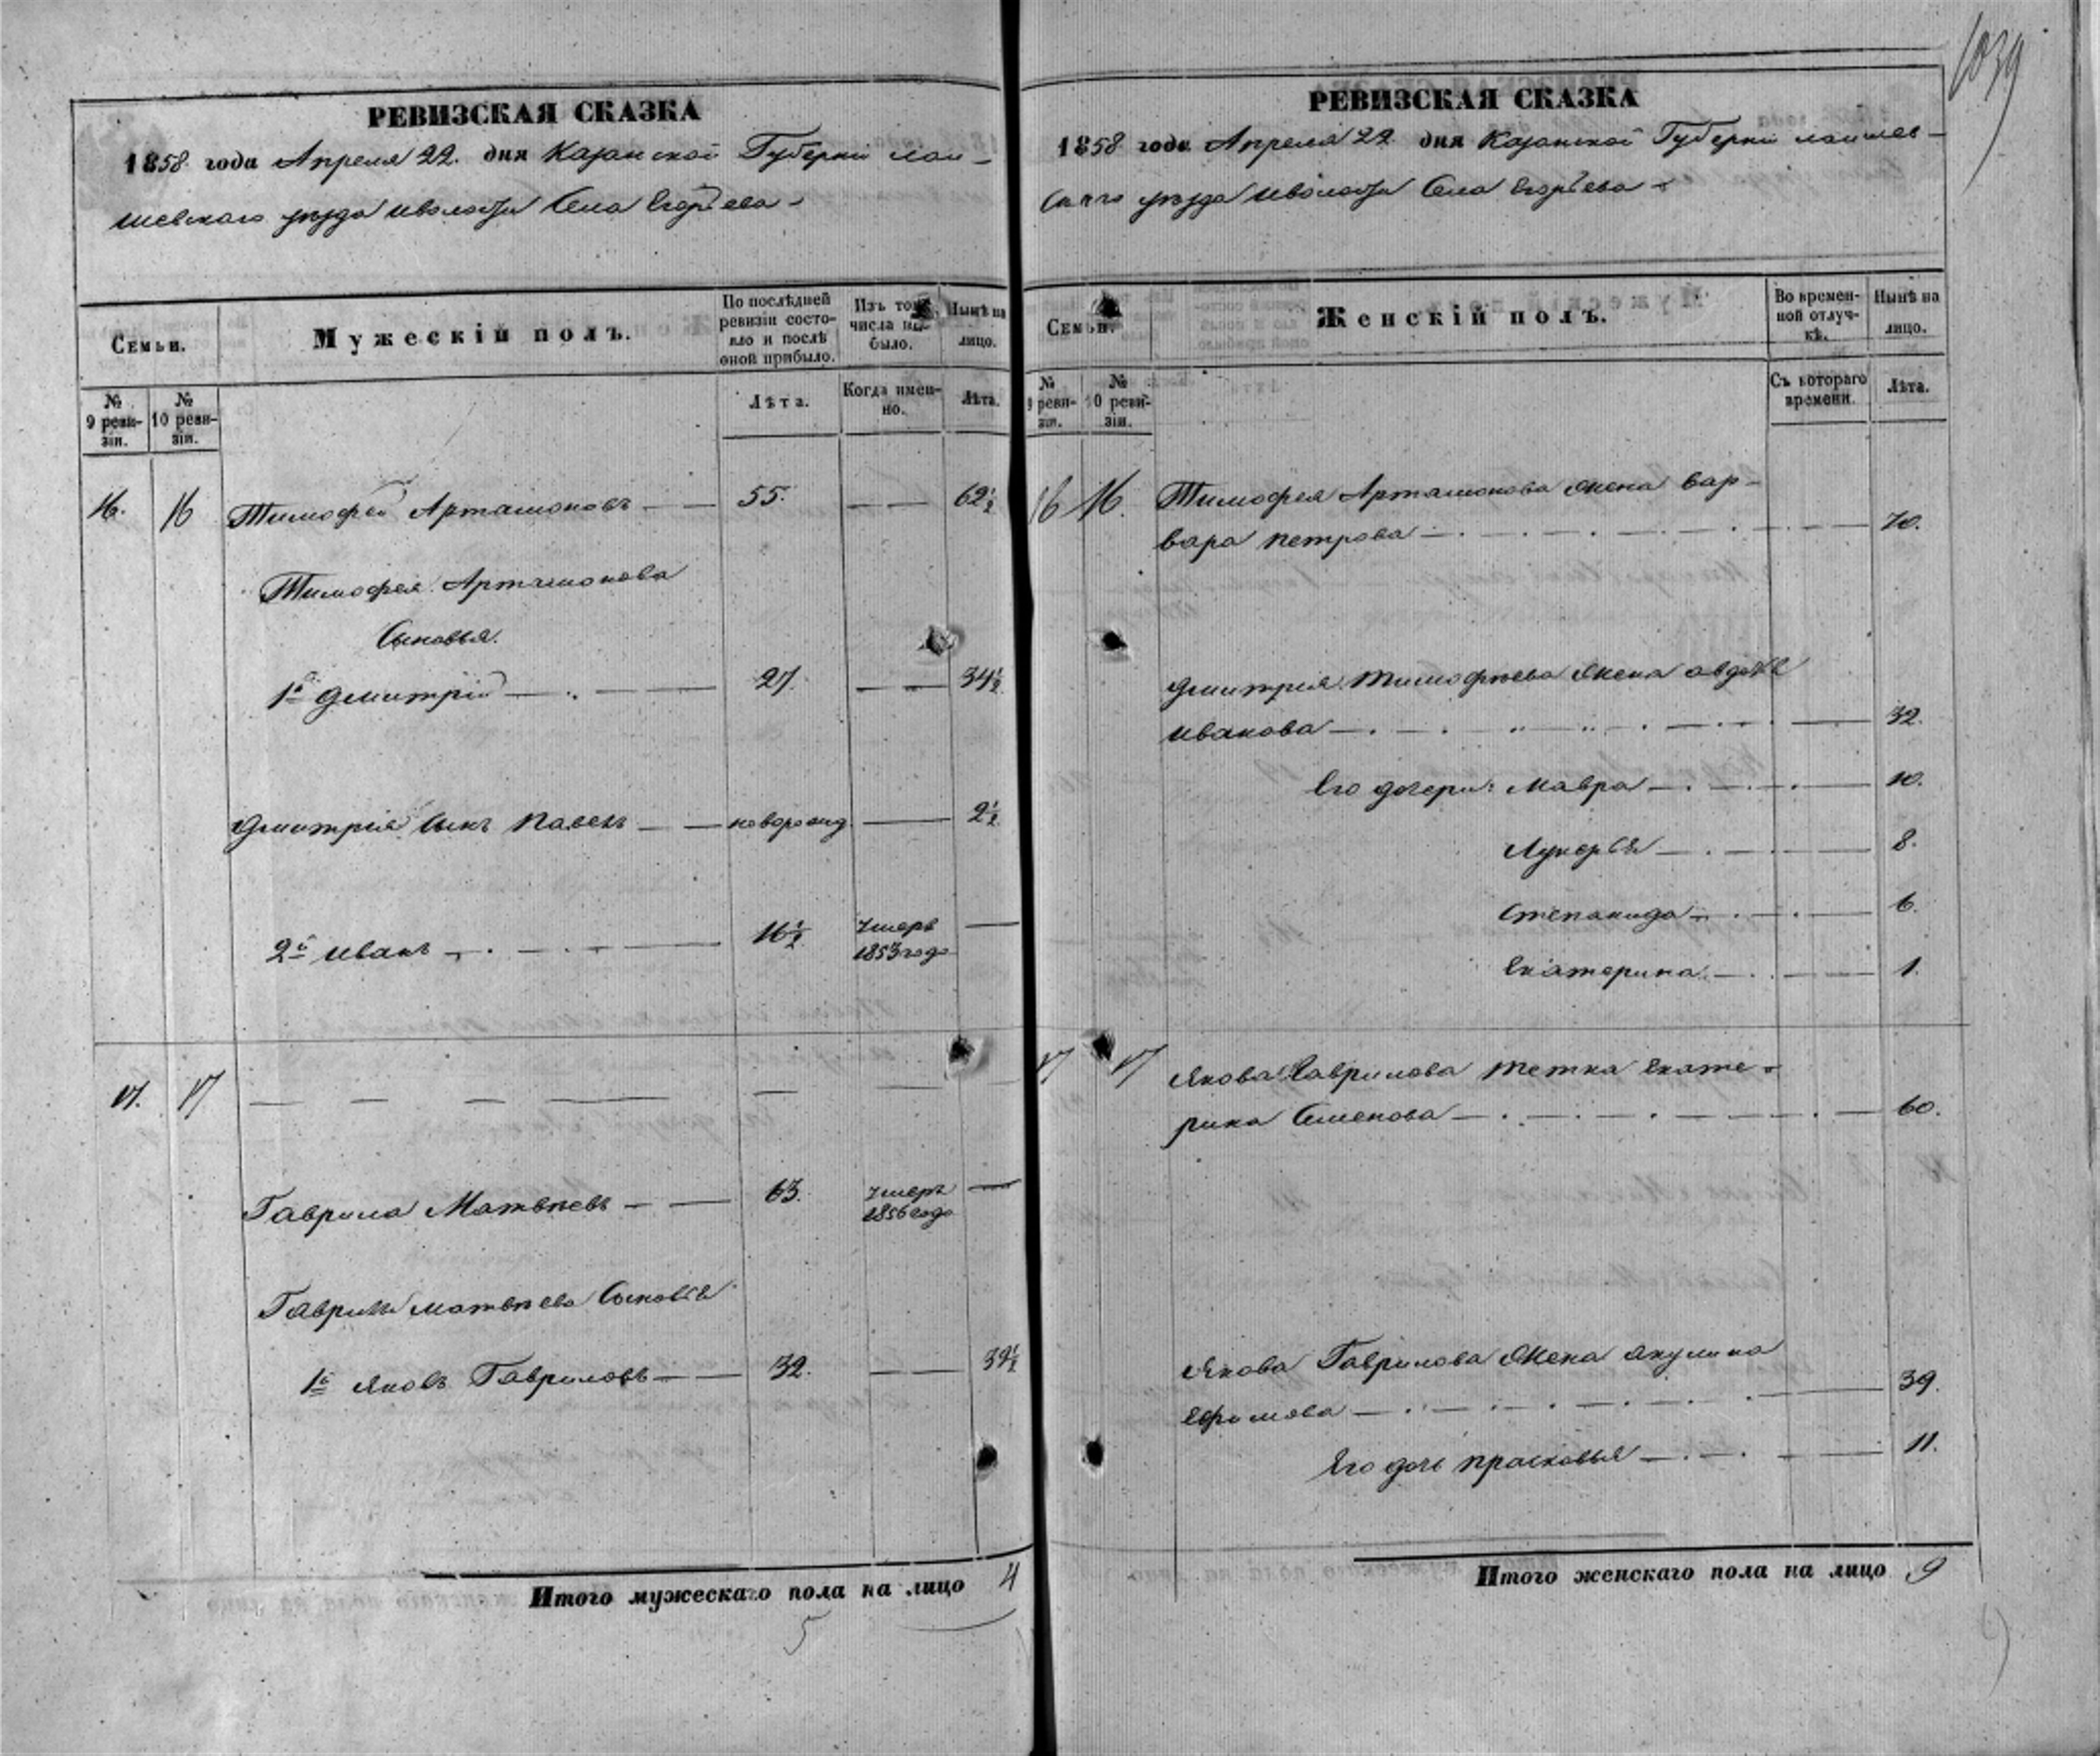 1039
РЕВИЗСКАЯ СКАЗКА
1858 года Апреля 22. дня Казанской Губерніи Лаи-
шевскаго уѣзда и волости Села Егорьева
Семьи.
Мужескій полъ.
По послѣдней ревизіи состо-яло и послѣ оной прибыло.
Изъ того числа вы-было.
Нынѣ на лицо.
№ 9 реви-зіи.
№ 10 реви-зіи.
Лѣта.
Когда имен-но.
Лѣта.
16. 16 Тимофей Артамоновъ 55. 62½
Тимофея Артамонова
Сыновья.
1й Дмитрій 27. 34½
Дмитрія Сынъ Павелъ новорожд 2½
2й Иванъ 16½ Умеръ
1853 года
17. 17
Гаврила Матвѣевъ 63. Умеръ
1856 года
Гаврилы Матвѣева Сыновья
1й Яковъ Гавриловъ 32. 39½
Итого мужескаго пола на лицо 4
5
РЕВИЗСКАЯ СКАЗКА
1858 года Апреля 22 дня Казанской Губерніи Лаишев-
скаго уѣзда и волости Села Егорьева
Семьи.
Женскій полъ.
Во времен-ной отлуч-кѣ.
Нынѣ на лицо.
№ 9 реви-зіи.
№ 10 реви-зіи.
Съ котораго времени.
Лѣта.
16 16. Тимофея Артамонова жена Вар-
вара Петрова 70.
Дмитрия Тимофѣева жена Авдотья
Иванова 32.
Его дочери: Мавра 10.
Лукерья 8.
Степанида 6.
Екатерина 1.
17 17 Якова Гаврилова тетка Екате-
рина Семенова 60.
Якова Гаврилова жена Акулина
Ефимова 39.
Его дочь Прасковья 11.
Итого женскаго пола на лицо 9